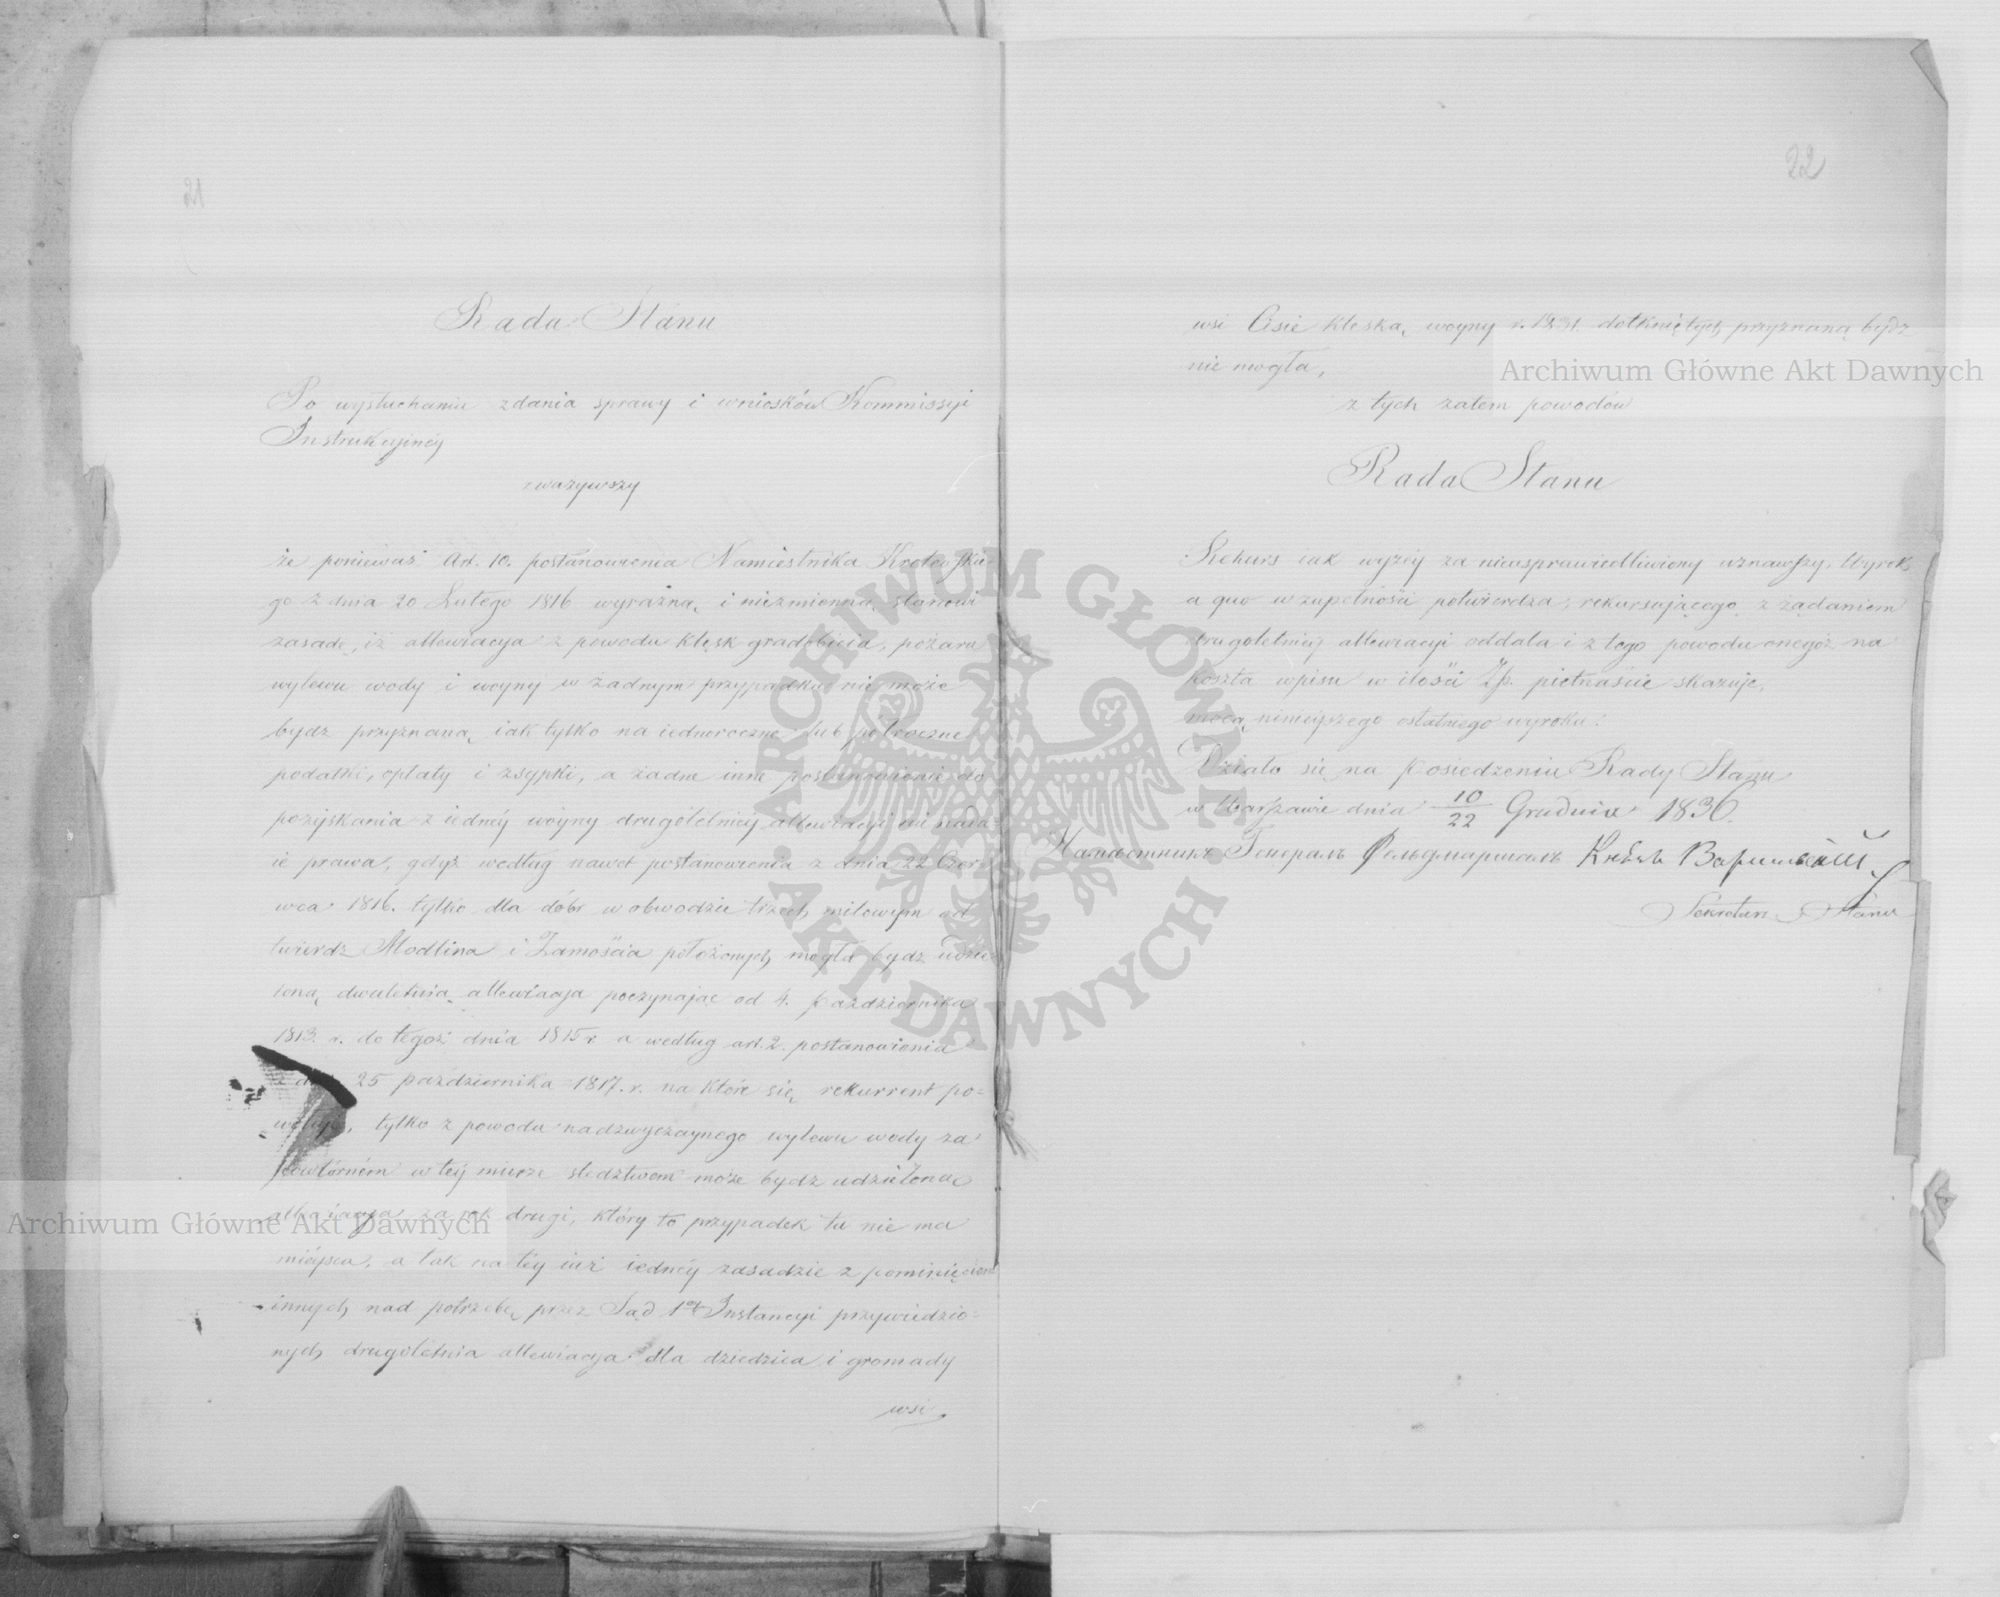 21
Rada Stanu
Po wysłuchaniu zdania sprawy i wniosków Kommissyi
Instrukcyinéy
zważywszy
że ponieważ Art. 10. postanowienia Namiestnika Królewskie-
go z dnia 20 Lutego 1816 wyraźną i niezmienną stanowi
zasadę, iż allewiacya z powodu klęsk gradobicia, pożaru
wylewu wody i woyny w żadnym przypadku nie może
bydź przyznaną iak tylko na iednoroczne lub półroczne
podatki, opłaty i zsypki, a żadne inne postanowienie do
pozyskania z iednéy woyny drugoletniey allewiacyi nie nada-
ie prawa, gdyż według nawet postanowienia z dnia 22 Czer-
wca 1816. tylko dla dóbr w obwodzie trzech milowym od
twierdz Modlina i Zamościa położonych mogła bydź udzie-
loną dwuletnia allewiacya poczynając od 4. Października
1813. r. do tegoż dnia 1815 r. a według art. 2. postanowienia
z dnia 25 października 1817. r. na które się rekurrent po=
wołuje, tylko z powodu nadzwyczaynego wylewu wody za
powtórném w téy mierze śledztwem może bydź udzieloną
allewiacya za rok drugi, który to przypadek tu nie ma
mieysca, a tak na téy iuż iednéy zasadzie z pominięciem
innych nad potrzebę przez Sąd 1éy Instancyi przywiedzio=
nych drugoletnia allewiacya dla dziedzica i gromady
wsi
22
wsi Cisie klęską woyny r. 1831. dotkniętych przyznaną bydź
nie mogła,
z tych zatem powodów
Rada Stanu
Rekurs iak wyżéy za nieusprawiedliwiony uznawszy, Wyrok
a quo w zupełności potwierdza, rekursującego z żądaniem
drugoletniéy allewiacyi oddala i z tego powodu onegoż na
koszta wpisu w ilości Zp. piętnaście skazuje,
mocą ninieyszego ostatniego wyroku.
Działo się na Posiedzeniu Rady Stanu
w Warszawie dnia 10/22 Grudnia 1836.
Намѣстникъ Генералъ Фельдмаршалъ Князь Варшавскій
Sekretarz Stanu
Archiwum Główne Akt Dawnych
Archiwum Główne Akt Dawnych
ARCHIWUM GŁÓWNE
AKT DAWNYCH